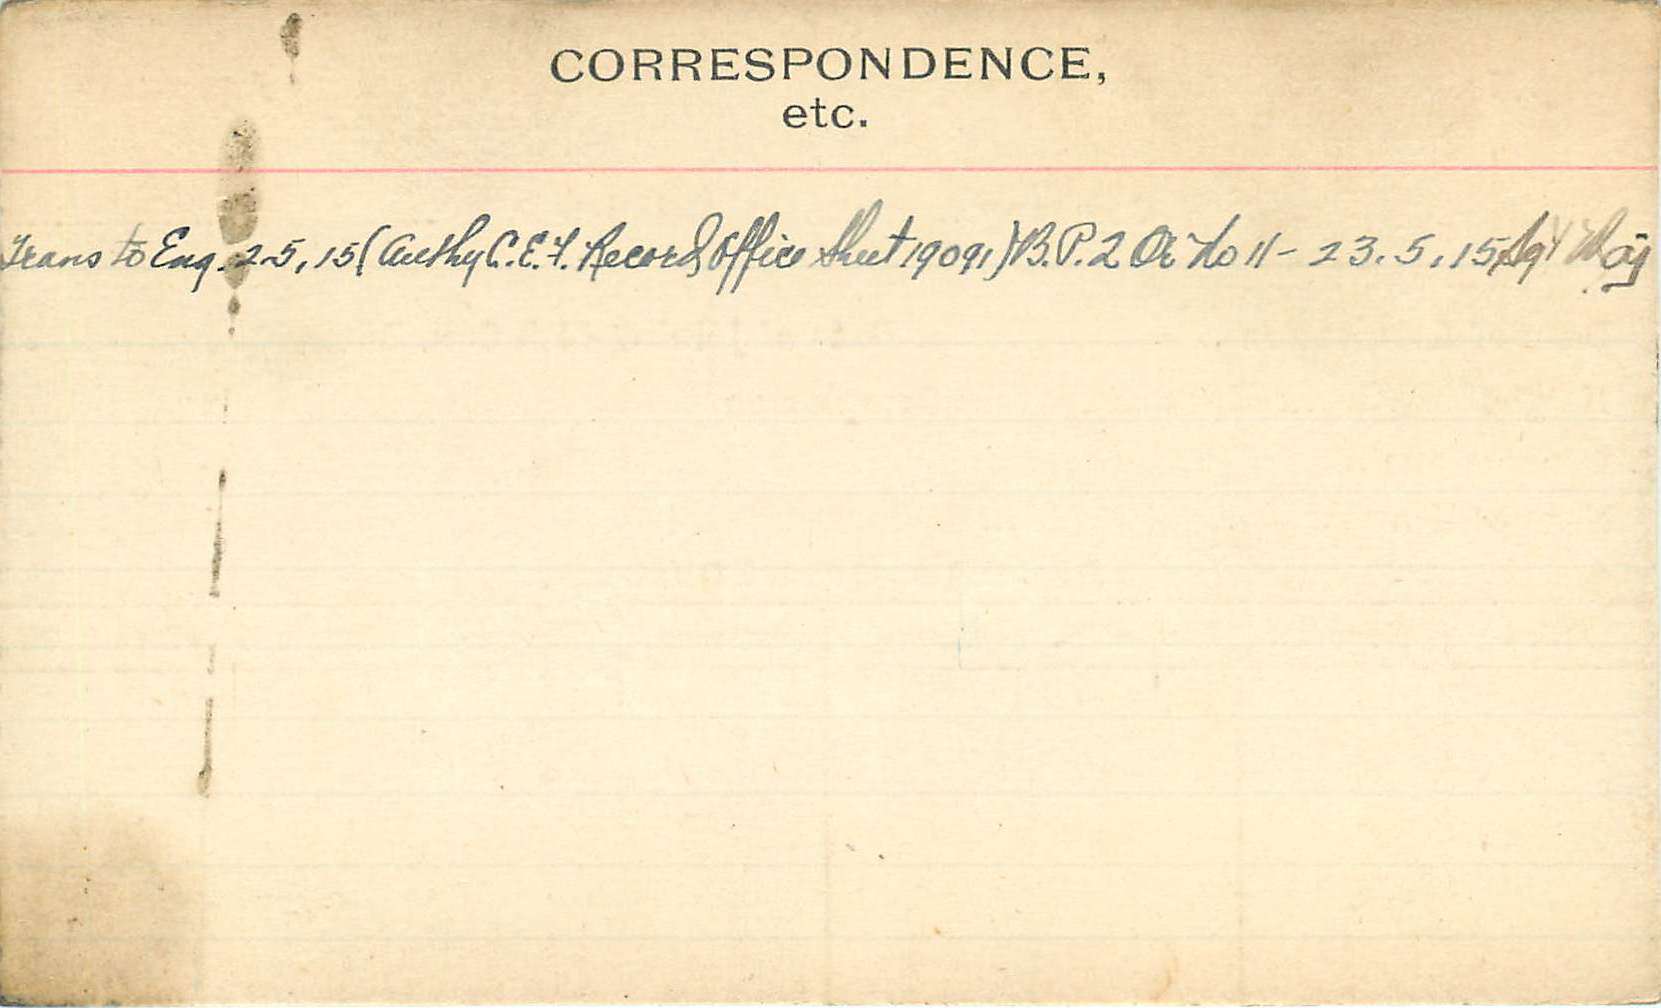 CORRESPONDENCE,
etc.
Trans to Eng. 2.5.15 (Authy C.E.F. Record Office Sheet 19091) B.P. 2 Or No 11 - 23.5.15